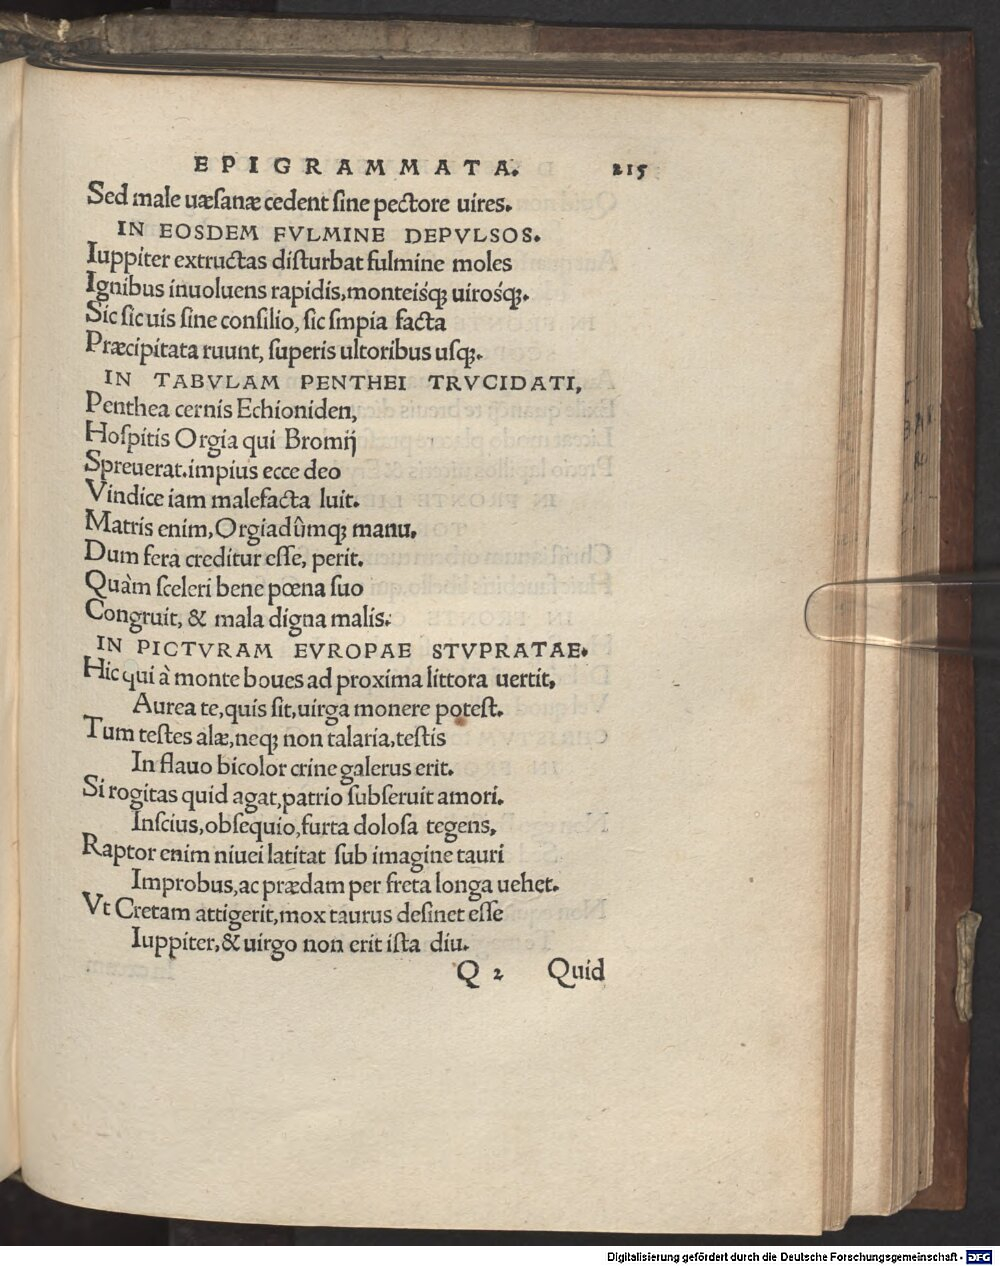 EPIGRAMMATA. 215
Sed male uæsanæ cedent sine pectore uires.
IN EOSDEM FVLMINE DEPVLSOS.
Iuppiter extructas disturbat fulmine moles
Ignibus inuoluens rapidis, monteisq́; uirosq́;.
Sic sic uis sine consilio, sic impia facta
Præcipitata ruunt, superis ultoribus usq;.
IN TABVLAM PENTHEI TRVCIDATI,
Penthea cernis Echioniden,
Hospitis Orgia qui Bromij
Spreuerat. impius ecce deo
Vindice iam malefacta luit.
Matris enim, Orgiadûmq; manu,
Dum fera creditur esse, perit.
Quàm sceleri bene pœna suo
Congruit, & mala digna malis.
IN PICTVRAM EVROPAE STVPRATAE.
Hic qui à monte boues ad proxima littora uertit,
Aurea te, quis sit, uirga monere potest.
Tum testes alæ, neq; non talaria, testis
In flauo bicolor crine galerus erit.
Si rogitas quid agat, patrio subseruit amori.
Inscius, obsequio, furta dolosa tegens,
Raptor enim niuei latitat sub imagine tauri
Improbus, ac prædam per freta longa uehet.
Vt Cretam attigerit, mox taurus desinet esse
Iuppiter, & uirgo non erit ista diu.
Q 2 Quid
Digitalisierung gefördert durch die Deutsche Forschungsgemeinschaft - DFG